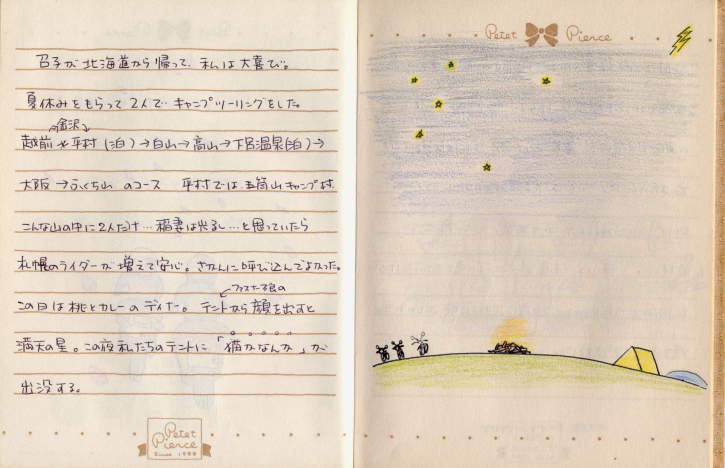 召子が北海道から帰って、私は大喜び。
夏休みをもらって2人で キャンプツーリングをした。
金沢
越前 平村(泊)→白山→高山→下呂温泉(泊)→
大阪→ふくち山 のコース 平村では、五箇山キャンプ村。
こんな山の中に2人だけ…稲妻は光るし…と思っていたら
札幌のライダーが増えて安心。さかんに呼び込んでよかった。
この日は桃とカレーのディナー。テントから顔を出すと
満天の星。この夜私たちのテントに「猫かなんか」が
出没する。
Petet Pierce
Since 1988
Petet Pierce